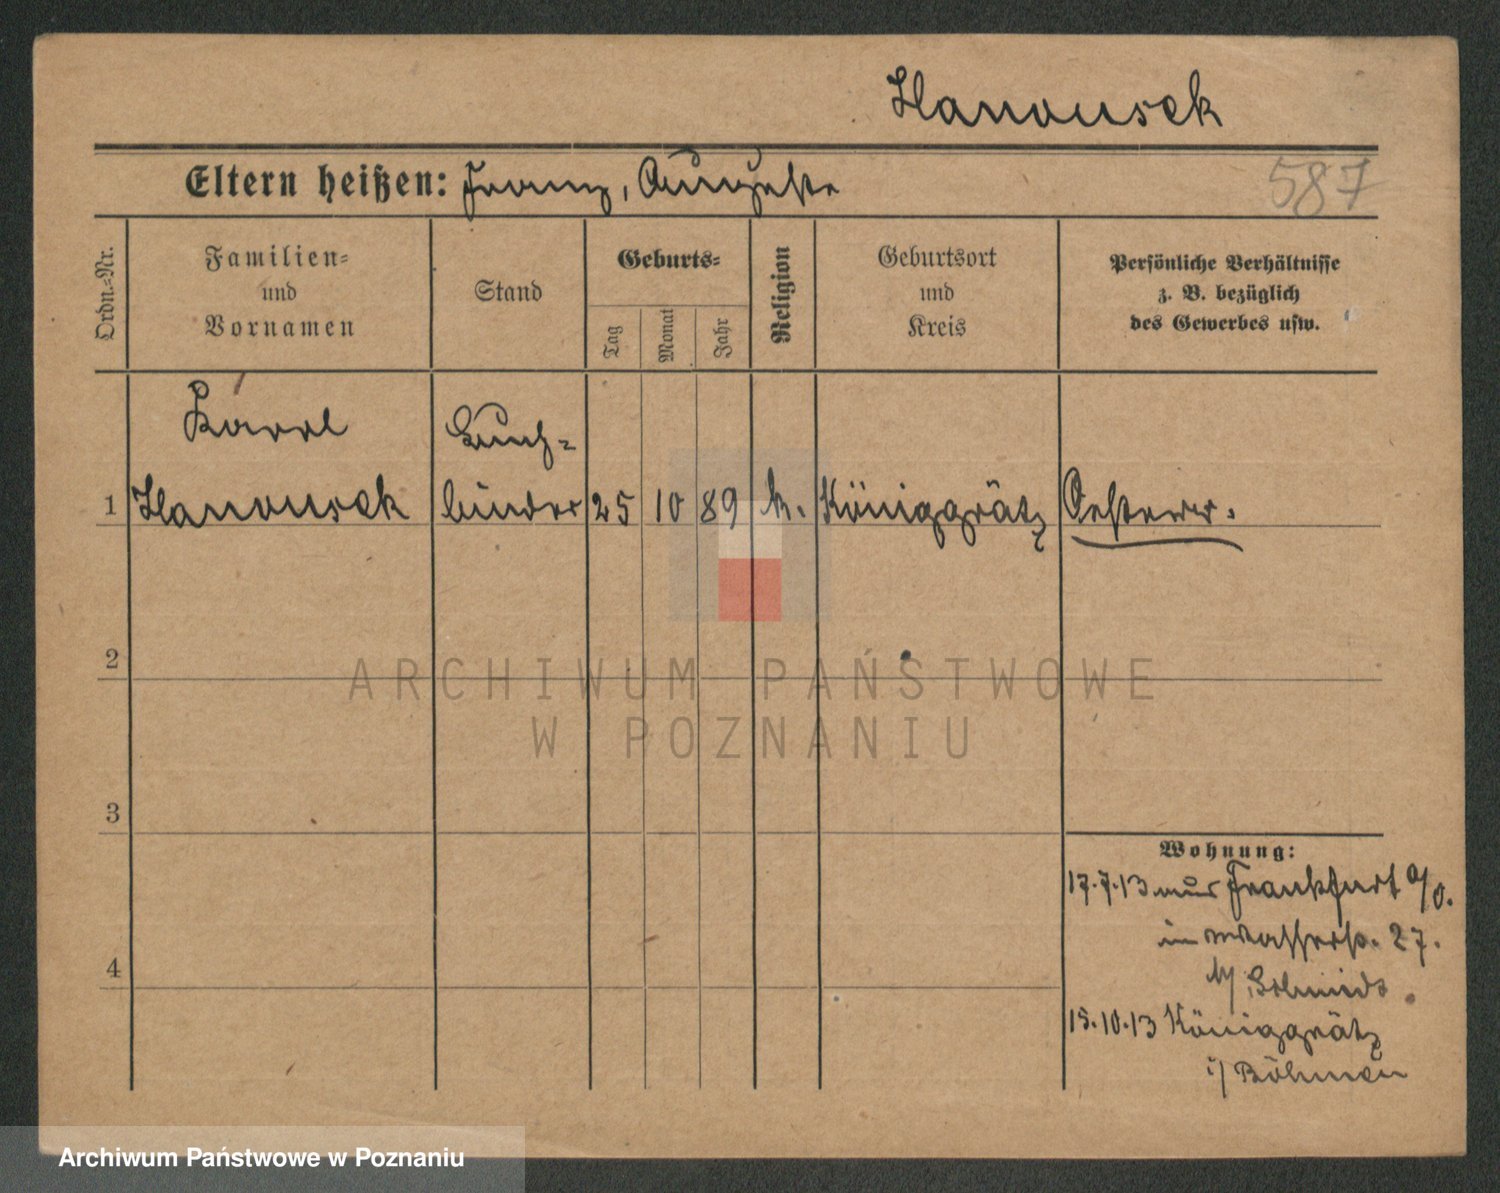 Hanousek
Eltern heißen: Franz, Auguste
587
Ordn.-Nr.
Familien-
und
Vornamen
Stand
Geburts-
Tag
Monat
Jahr
Religion
Geburtsort
und
Kreis
Persönliche Verhältnisse
z. B. bezüglich
des Gewerbes usw.
Karel Buch-
1 Hanousek binder 25 10 89 k. Königgrätz Oesterr.
2
ARCHIWUM PAŃSTWOWE
W POZNANIU
3
Wohnung:
17.7.13 aus Frankfurt a/O.
in Wasserstr. 27.
b/ Schmidt.
4
15.10.13 Königgrätz
i/ Böhmen
Archiwum Państwowe w Poznaniu